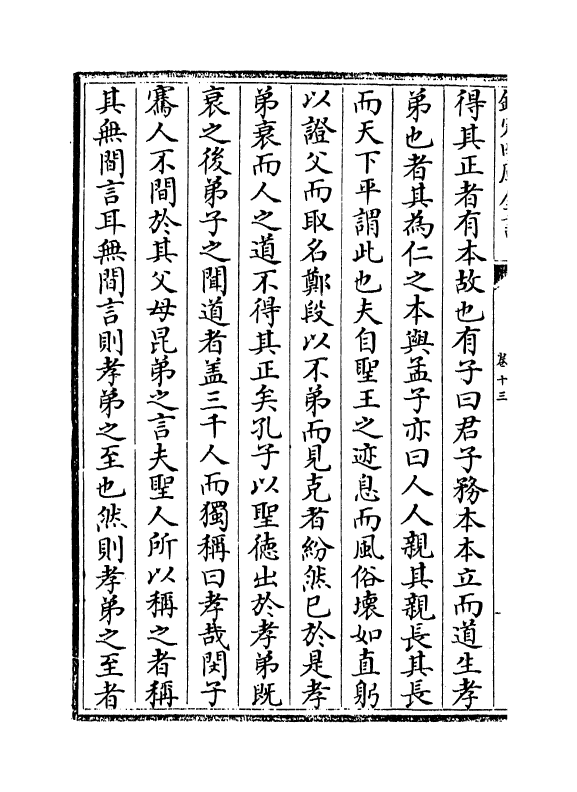 欽定四庫全書
卷十三
得其正者有本故也有子曰君子務本本立而道生孝
弟也者其為仁之本與孟子亦曰人人親其親長其長
而天下平謂此也夫自聖王之迹息而風俗壞如直躬
以證父而取名鄭段以不弟而見克者紛然已於是孝
弟衰而人之道不得其正矣孔子以聖徳出於孝弟既
衰之後弟子之聞道者盖三千人而獨稱曰孝哉閔子
騫人不間於其父母昆弟之言夫聖人所以稱之者稱
其無間言耳無間言則孝弟之至也然則孝弟之至者